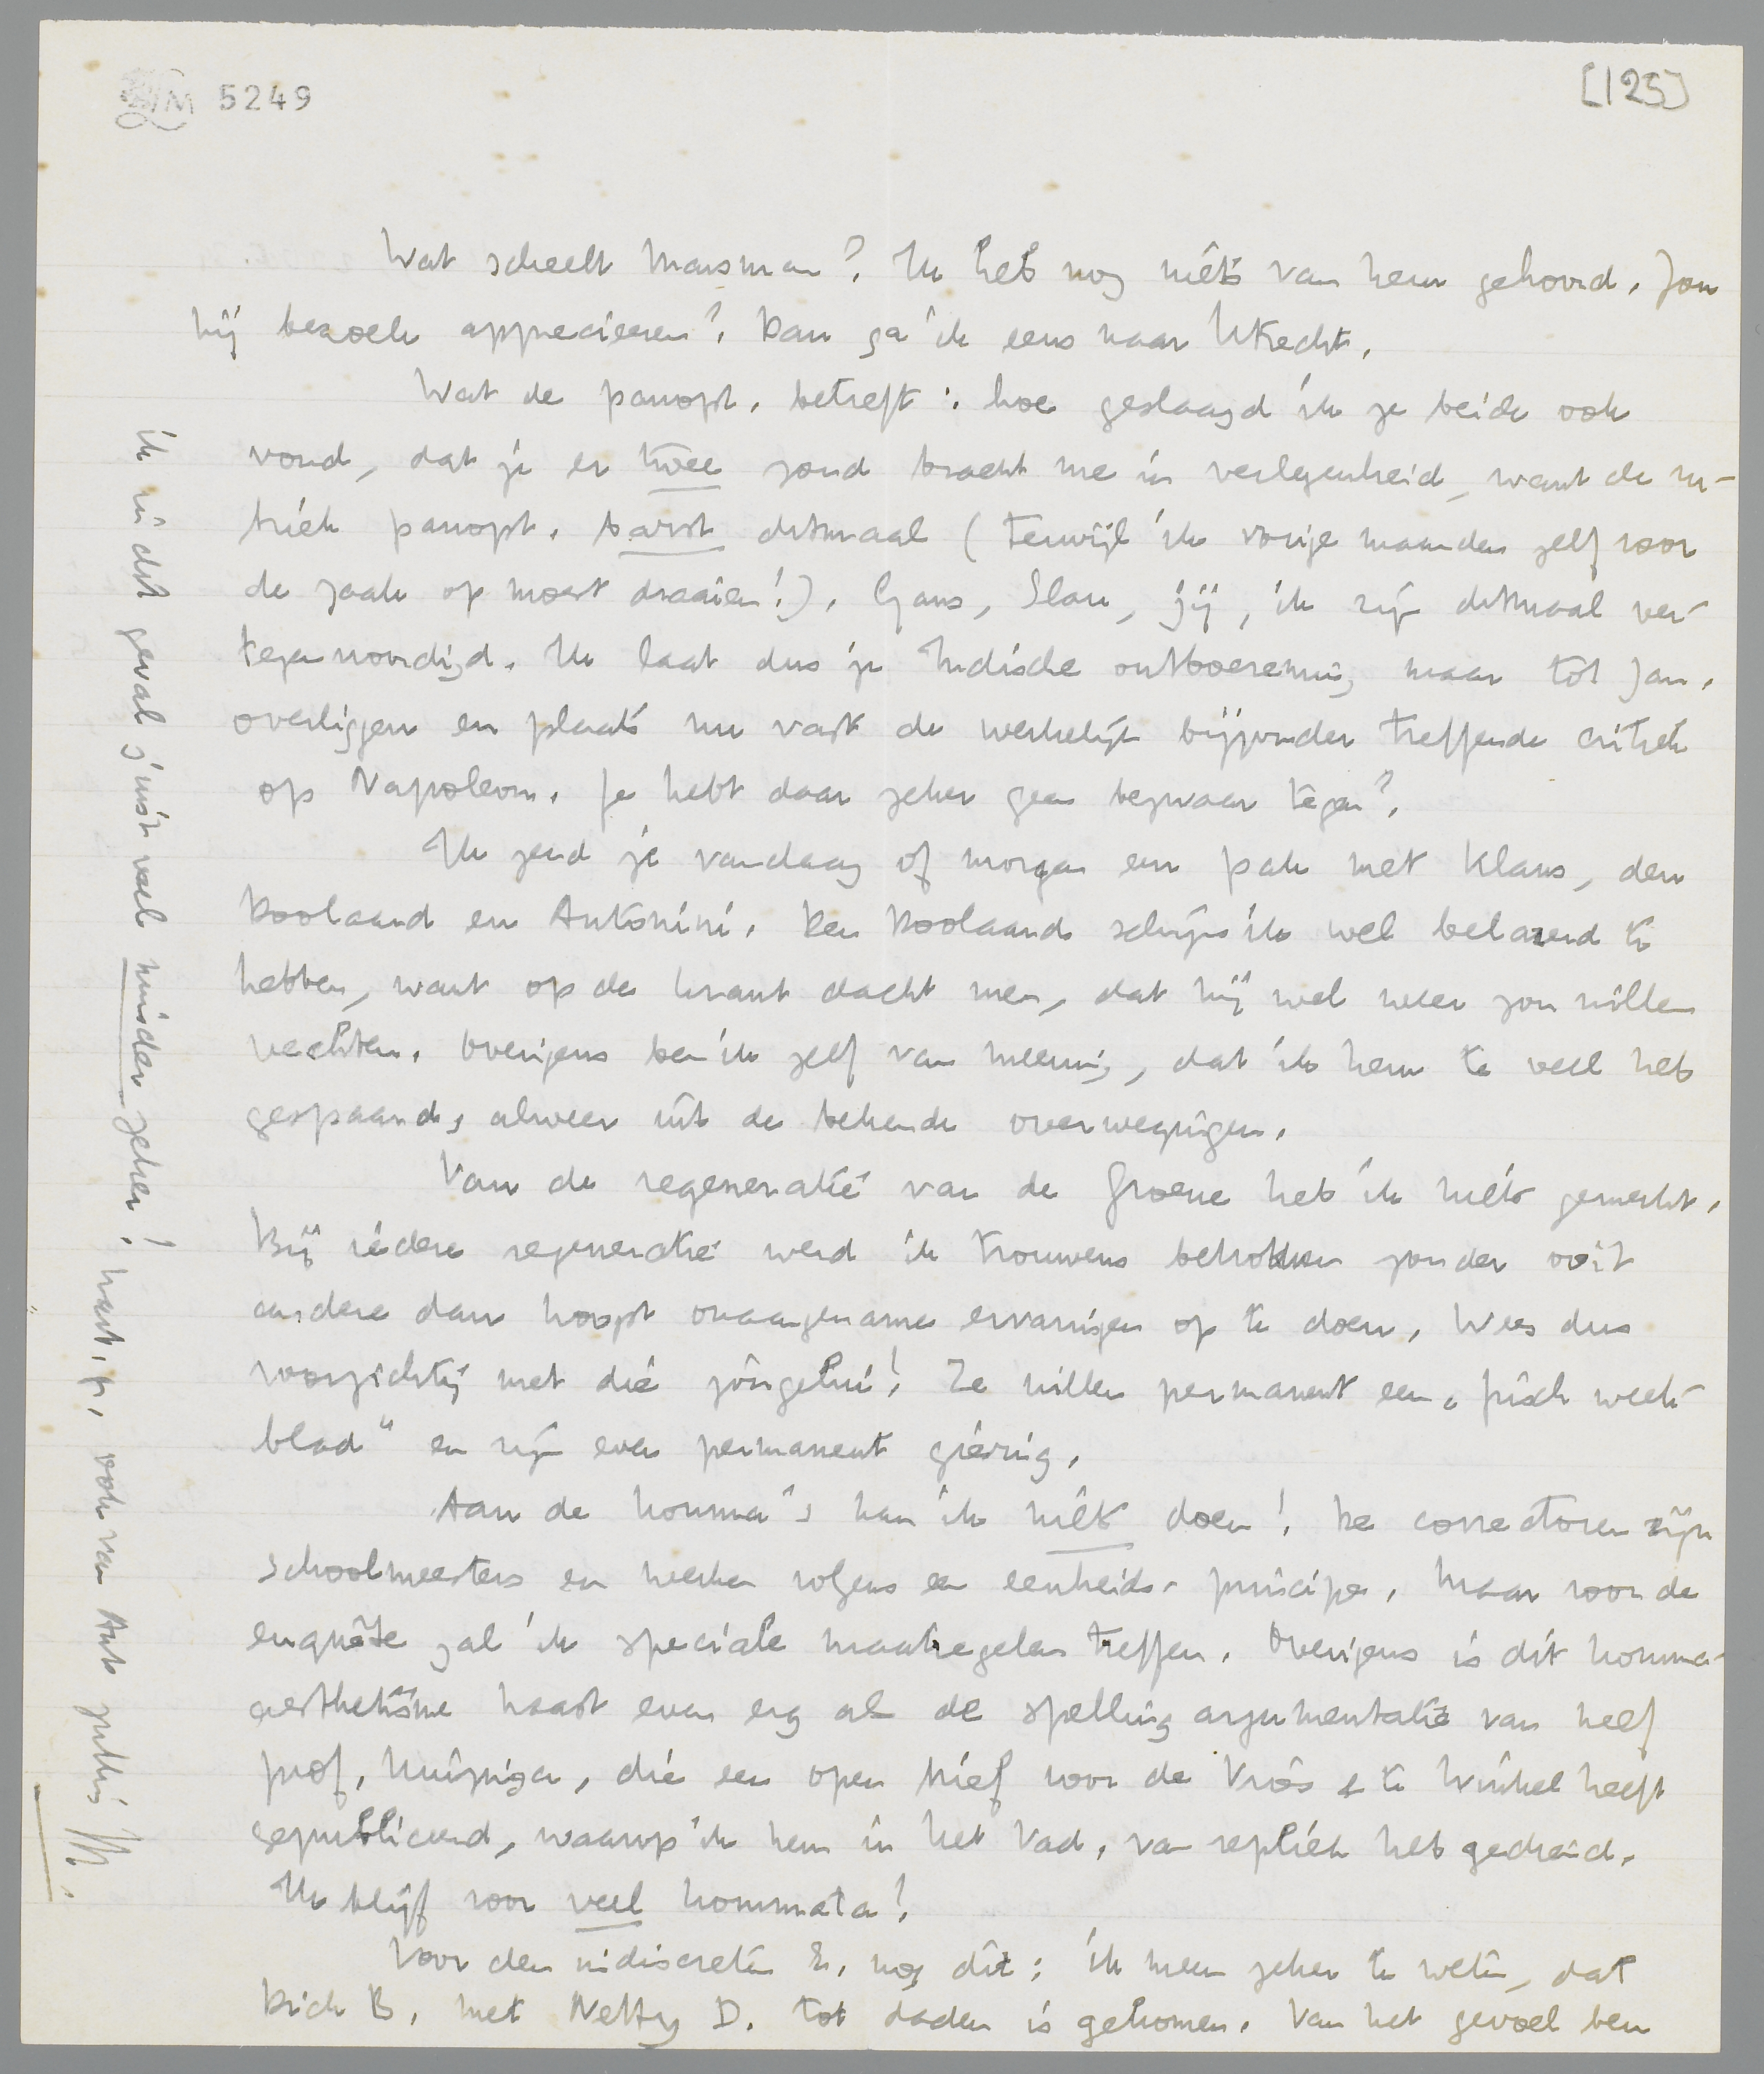 5249
[125]
Wat scheelt Marsman? Ik heb nog niets van hem gehoord. Zou
hij bezoek apprecieeren? Dan ga ik eens naar Utrecht.
Wat de panopt. betreft: hoe geslaagd ik ze beide ook
vond, dat je er twee zond bracht me in verlegenheid, want de ru-
briek panopt. barst ditmaal (terwijl ik vorige maanden zelf voor
de zaak op moest draaien!). Gans, Slau, jij, ik zijn ditmaal ver-
tegenwoordigd. Ik laat dus je Indische ontboezeming maar tot Jan.
overliggen en plaats nu vast de werkelijk bijzonder treffende critiek
op Napoleon. Je hebt daar zeker geen bezwaar tegen?
Ik zend je vandaag of morgen een pak met Klaus, den
Doolaard en Antonini. Den Doolaard schijn ik wel beloerend te
hebben, want op de krant dacht men, dat hij wel weer zou willen
vechten. Overigens ben ik zelf van meening, dat ik hem te veel heb
gespaard, alweer uit de bekende overwegingen.
Van de regeneratie van de Groene heb ik niets gemerkt.
Bij iedere regeneratie werd ik trouwens betrokken zonder ooit
andere dan hoogst onaangename ervaringen op te doen. Wees dus
voorzichtig met die jongelui! Ze willen permanent een „frisch week-
blad" en zijn even permanent gierig.
Aan de komma's kan ik niets doen! De correctoren zijn
schoolmeesters en werken volgens een eenheids-principe. Maar voor de
enquête zal ik speciale maatregelen treffen. Overigens is dit komma-
aesthetisme haast even erg als de spelling argumentatie van neef
prof. Huizinga, die een open brief voor de Vries & te Winkel heeft
gepubliceerd, waarop ik hem in het Vad. van repliek heb gediend.
Ik blijf voor veel kommata!
Voor den indiscreten E. nog dit: ik meen zeker te weten, dat
Dick B. met Netty D. tot daden is gekomen. Van het gevoel ben
ik in dit geval juist veel minder zeker! hart. gr. ook van Ant jullie M.